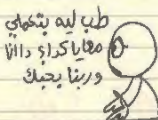 طب ليه بتعملي
معايا كدا؟ دا انا
وربنا بحبك